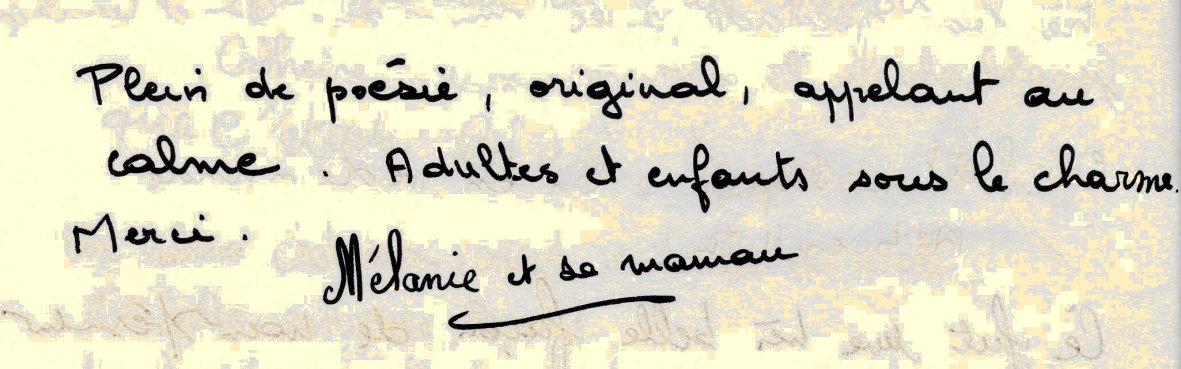 Plein de poésie, original, appelant au
calme. Adultes et enfants sous le charme.
Merci.
Mélanie et sa maman